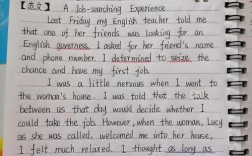 【范文】 A Job-searching Experience
Last Friday my English teacher told me
that one of her friends was looking for an
English governess. I asked for her friend's name
and phone number. I determined to seize the
chance and have my first job.
I was a little nervous when I went to
the woman's house. I was told that the talk
between us that day would decide whether I
could take the job. However, when the woman, Lucy
as she was called, welcomed me into her house,
I felt much relaxed. I thought as long as